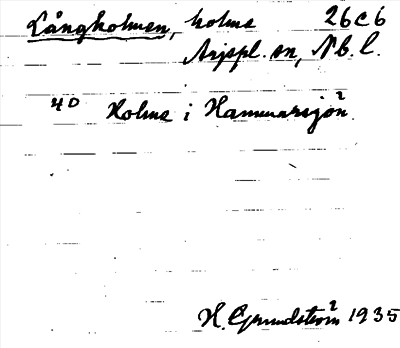 Långholmen, holme 26C6
Arjspl. sn, Nb. l.
40 Holme i Hammarsjön
H. Grundström 1935